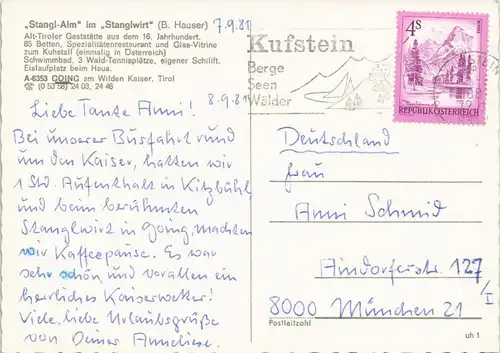 „Stangl-Alm" im „Stanglwirt" (B. Hauser) 7.9.81
Alt-Tiroler Gaststätte aus dem 16. Jahrhundert.
85 Betten, Spezialitätenrestaurant und Glas-Vitrine
zum Kuhstall (einmalig in Österreich)
Schwimmbad. 3 Wald-Tennisplätze, eigener Schilift.
Eislaufplatz beim Haus.
A-6353 GOING am Wilden Kaiser, Tirol
☏ (0 53 58) 24 03, 24 46
8.9.81
Liebe Tante Anni!
Bei unserer Busfahrt rund
um den Kaiser, hatten wir
1 Std. Aufenthalt in Kitzbühl,
und beim berühmten
Stanglwirt in Going, machten
wir Kaffeepause. Es war
sehr schön, und vor allen ein
herrliches Kaiserwetter!
Viele, liebe Urlaubsgrüße
von Deiner Anneliese.
Kufstein
Berge
Seen
Wälder
4S
REPUBLIK ÖSTERREICH
Deutschland
Frau
Anni Schmid
Aindorferstr. 127/I
8000 München 21
Postleitzahl
uh 1